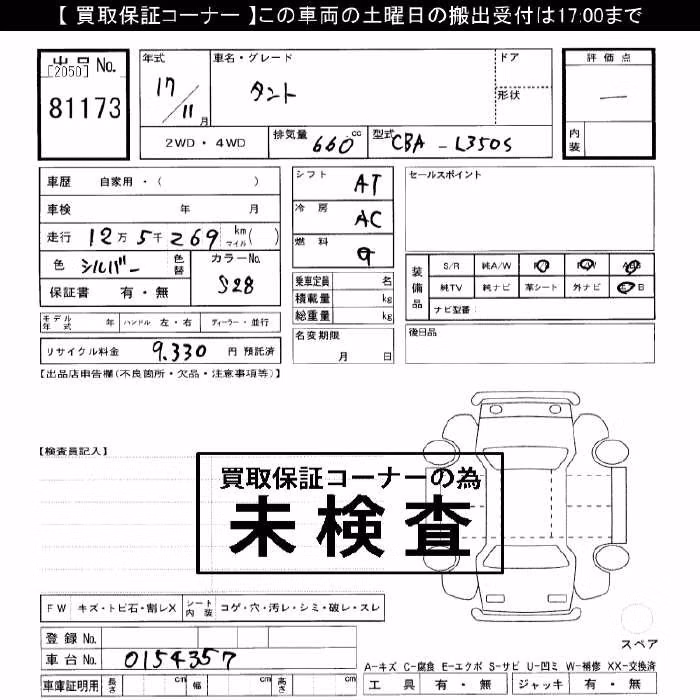 【 買取保証コーナー 】この車両の土曜日の搬出受付は17:00まで
出品 No.
[2050]
81173
年式
17/11月
車名・グレード
タント
ドア
形状
評価点
―
内装
2WD・4WD
排気量 660 cc
型式 CBA - L350S
車歴 自家用・( )
車検 年 月
走行 12万5千269 km マイル ( )
色 シルバー 色替
カラーNo. S28
保証書 有・無
シフト AT
冷房 AC
燃料 G
乗車定員 名
積載量 kg
総重量 kg
セールスポイント
装備品
S/R 純A/W P/S P/W ABS
純TV 純ナビ 革シート 外ナビ B
ナビ型番:
モデル年式 年 ハンドル 左・右 ディーラー・並行
リサイクル料金 9.330 円 預託済
名変期限
月 日
後日品
【出品店申告欄(不良箇所・欠品・注意事項等)】
【検査員記入】
買取保証コーナーの為
未検査
FW キズ・トビ石・割レX シート内装 コゲ・穴・汚レ・シミ・破レ・スレ
登録 No.
車台 No. 0154357
車庫証明用 長さ cm 幅 cm 高さ cm
スペア
A-キズ C-腐食 E-エクボ S-サビ U-凹ミ W-補修 XX-交換済
工具 有・無 ジャッキ 有・無